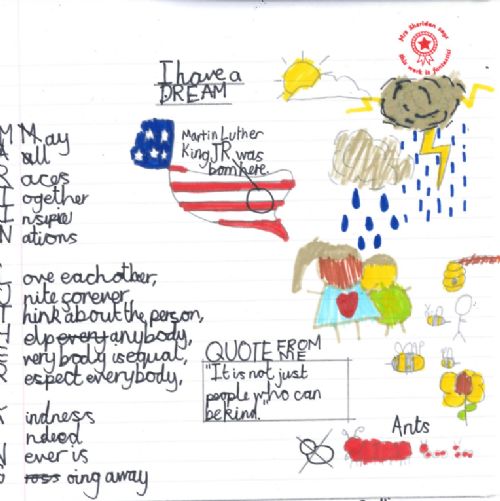 Mrs Sheridan says
this work is fantastic!
I have a
DREAM
Martin Luther
King JR was
born here.
M May
A all
R races
T Together
I Inspire
N Nations
L ove each other,
U nite forever,
T hink about the person,
H elp every anybody,
E very body is equal,
R espect everybody,
K indness
I ndeed
N ever is
G oing away
QUOTE FROM
ME
"It is not just
people who can
be kind."
Ants